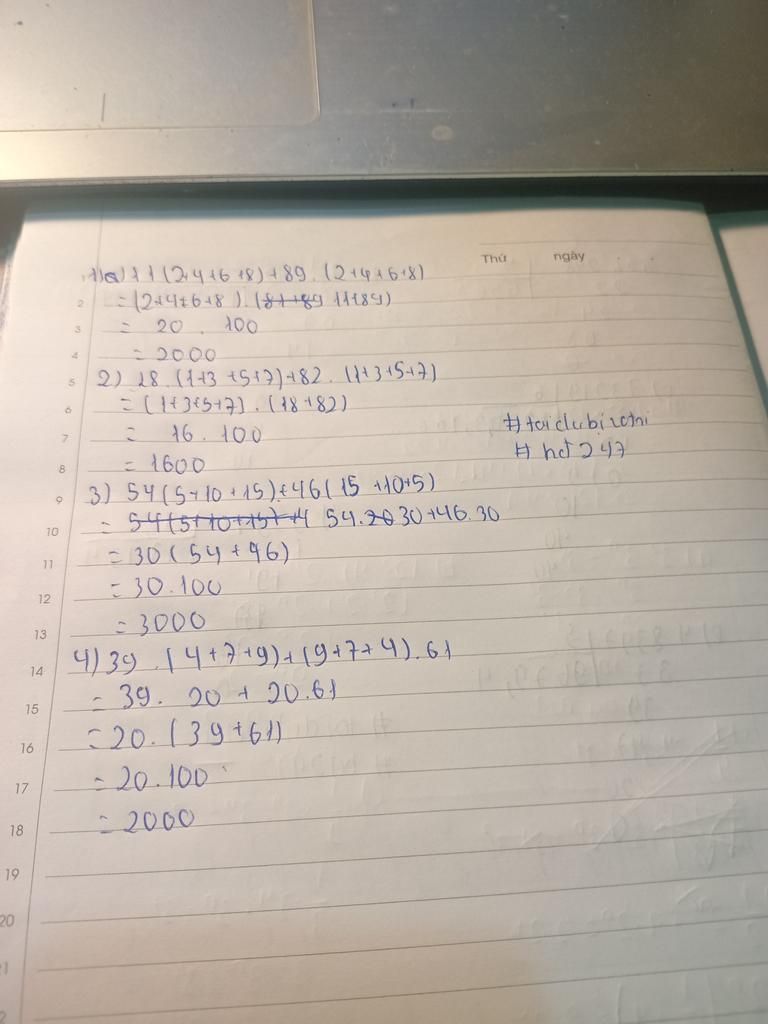 Thứ ngày
1) a) 11 (2+4+6+8)+89.(2+4+6+8)
2 =(2+4+6+8).(81+89 11+89)
3 = 20 . 100
4 = 2000
5 2) 18.(1+3+5+7)+82.(1+3+5+7)
6 =(1+3+5+7).(18+82)
7 = 16.100
8 = 1600
#hot247
9 3) 54(5+10+15)+46(15+10+5)
10 = 54(5+10+15)+4 54.20 30+46.30
11 = 30(54+46)
12 = 30.100
13 = 3000
14 4) 39.(4+7+9)+(9+7+4).61
15 = 39. 20 + 20.61
16 = 20.(39+61)
17 = 20.100
18 = 2000
19
20